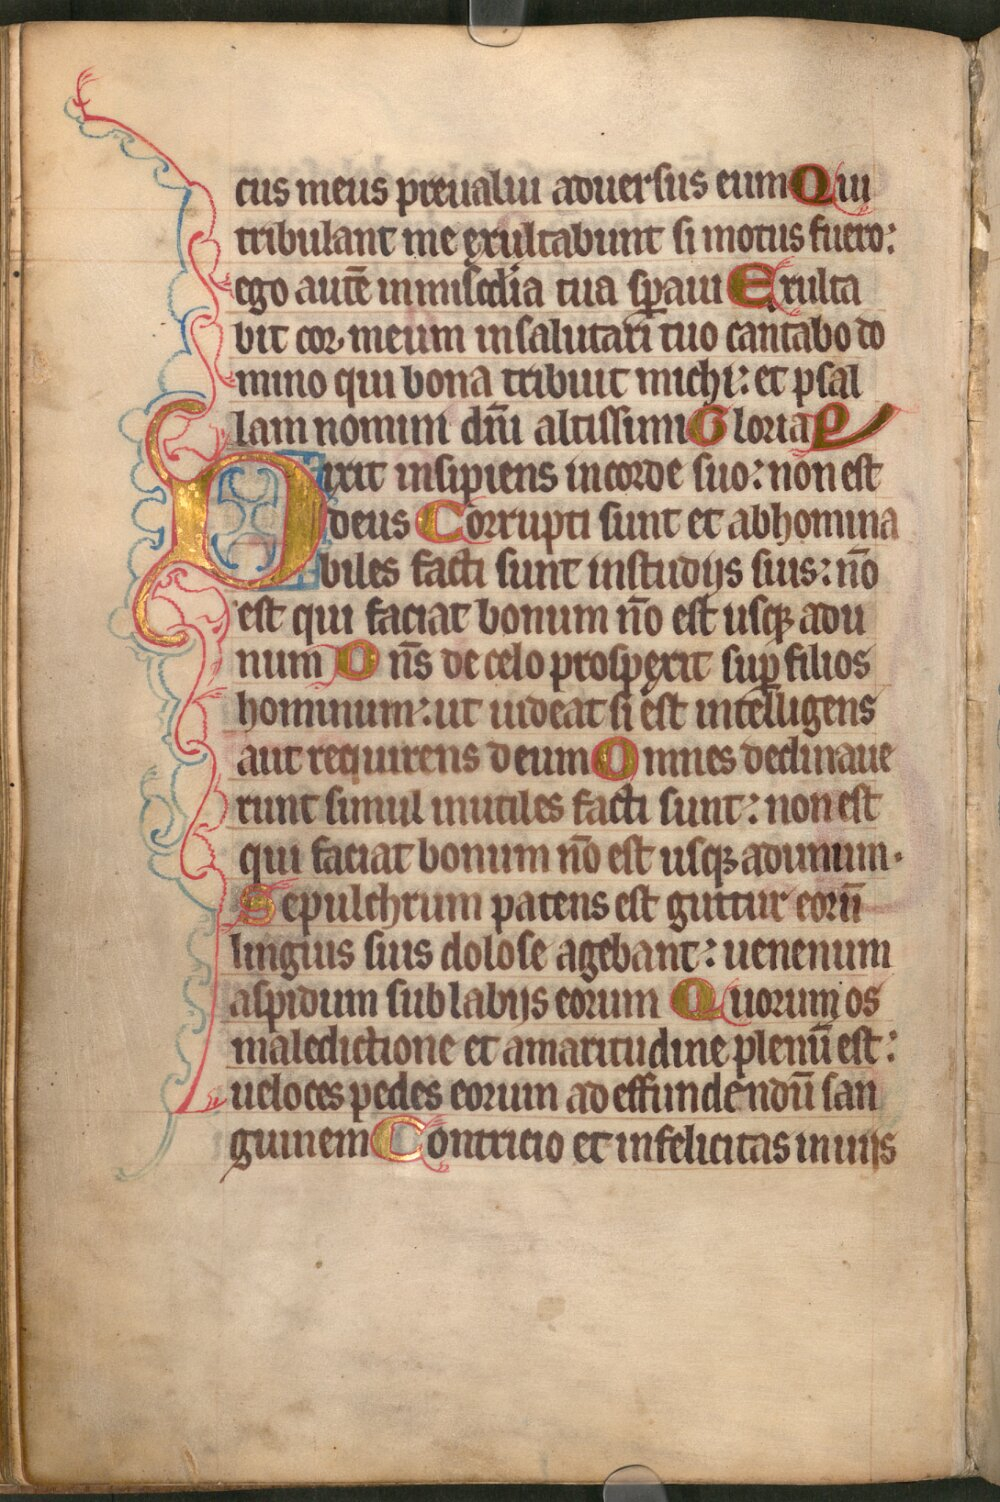 cus meus preualui aduersus eum Qui
tribulant me exultabunt si motus fuero:
ego autē in mis̄cdia tua sꝑaui Exulta
bit cor meum in salutari tuo cantabo do
mino qui bona tribuit michi: et psal
lam nomini dn̄i altissimi Gloria P
Dixit insipiens in corde suo: non est
deus Corrupti sunt et abhomina
biles facti sunt in studijs suis: nō
est qui faciat bonum nō est usqꝫ ad u
num Dn̄s de celo prospexit suꝑ filios
hominum: ut uideat si est intelligens
aut requirens deum Omnes declinaue
runt simul inutiles facti sunt: non est
qui faciat bonum nō est usqꝫ ad unum.
Sepulchrum patens est guttur eorū
linguis suis dolose agebant: uenenum
aspidum sub labijs eorum Quorum os
maledictione et amaritudine plenū est:
ueloces pedes eorum ad effundendū san
guinem Contricio et infelicitas in uijs